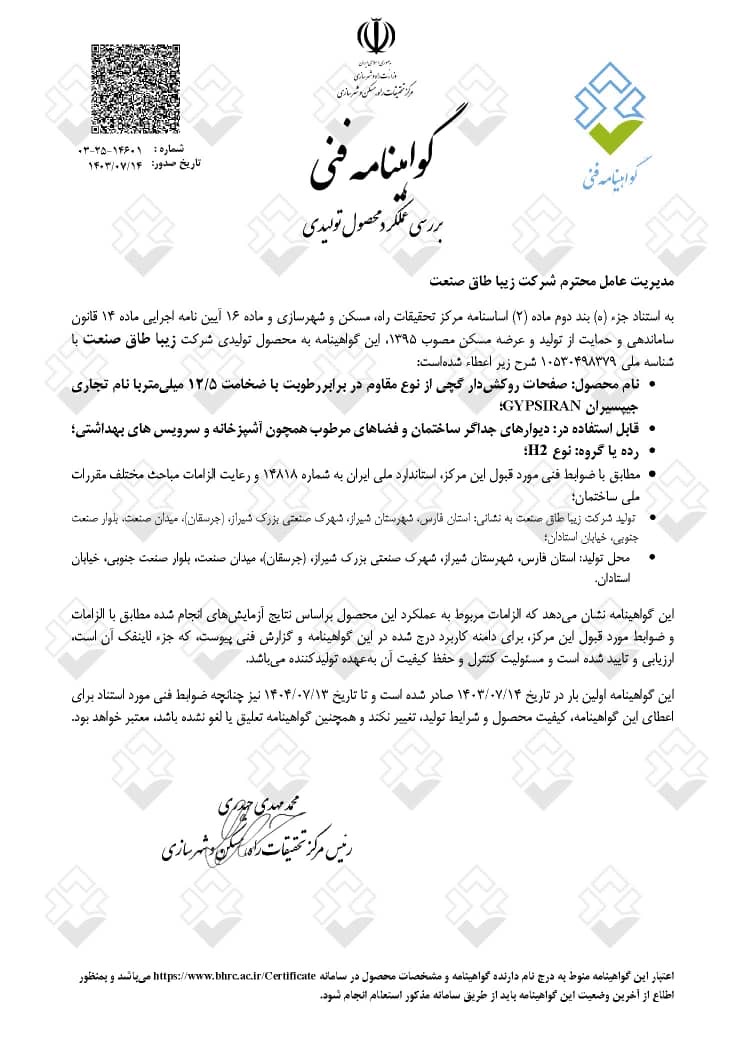 جمهوری اسلامی ایران
وزارت راه و شهرسازی
مرکز تحقیقات راه، مسکن و شهرسازی
گواهینامه فنی
بررسی عملکرد محصول تولیدی
گواهینامه فنی
شماره : ۰۳-۲۵-۱۴۶۰۱
تاریخ صدور: ۱۴۰۳/۰۷/۱۴
مدیریت عامل محترم شرکت زیبا طاق صنعت
به استناد جزء (ه) بند دوم ماده (۲) اساسنامه مرکز تحقیقات راه، مسکن و شهرسازی و ماده ۱۶ آیین نامه اجرایی ماده ۱۴ قانون
ساماندهی و حمایت از تولید و عرضه مسکن مصوب ۱۳۹۵، این گواهینامه به محصول تولیدی شرکت زیبا طاق صنعت با
شناسه ملی ۱۰۵۳۰۴۹۸۳۷۹ شرح زیر اعطاء شده‌است:
• نام محصول: صفحات روکش‌دار گچی از نوع مقاوم در برابررطوبت با ضخامت ۱۲/۵ میلی‌متربا نام تجاری
جیپسیران GYPSIRAN؛
• قابل استفاده در: دیوارهای جداگر ساختمان و فضاهای مرطوب همچون آشپزخانه و سرویس های بهداشتی؛
• رده یا گروه: نوع H2؛
• مطابق با ضوابط فنی مورد قبول این مرکز، استاندارد ملی ایران به شماره ۱۴۸۱۸ و رعایت الزامات مباحث مختلف مقررات
ملی ساختمان؛
• تولید شرکت زیبا طاق صنعت به نشانی: استان فارس، شهرستان شیراز، شهرک صنعتی بزرک شیراز، (جرسقان)، میدان صنعت، بلوار صنعت
جنوبی، خیابان استادان؛
• محل تولید: استان فارس، شهرستان شیراز، شهرک صنعتی بزرک شیراز، (جرسقان)، میدان صنعت، بلوار صنعت جنوبی، خیابان
استادان.
این گواهینامه نشان می‌دهد که الزامات مربوط به عملکرد این محصول براساس نتایج آزمایش‌های انجام شده مطابق با الزامات
و ضوابط مورد قبول این مرکز، برای دامنه کاربرد درج شده در این گواهینامه و گزارش فنی پیوست، که جزء لاینفک آن است،
ارزیابی و تایید شده است و مسئولیت کنترل و حفظ کیفیت آن به‌عهده تولیدکننده می‌باشد.
این گواهینامه اولین بار در تاریخ ۱۴۰۳/۰۷/۱۴ صادر شده است و تا تاریخ ۱۴۰۴/۰۷/۱۳ نیز چنانچه ضوابط فنی مورد استناد برای
اعطای این گواهینامه، کیفیت محصول و شرایط تولید، تغییر نکند و همچنین گواهینامه تعلیق یا لغو نشده باشد، معتبر خواهد بود.
محمد مهدی حیدری
رئیس مرکز تحقیقات راه، مسکن و شهرسازی
اعتبار این گواهینامه منوط به درج نام دارنده گواهینامه و مشخصات محصول در سامانه https://www.bhrc.ac.ir/Certificate می‌باشد و بمنظور
اطلاع از آخرین وضعیت این گواهینامه باید از طریق سامانه مذکور استعلام انجام شود.